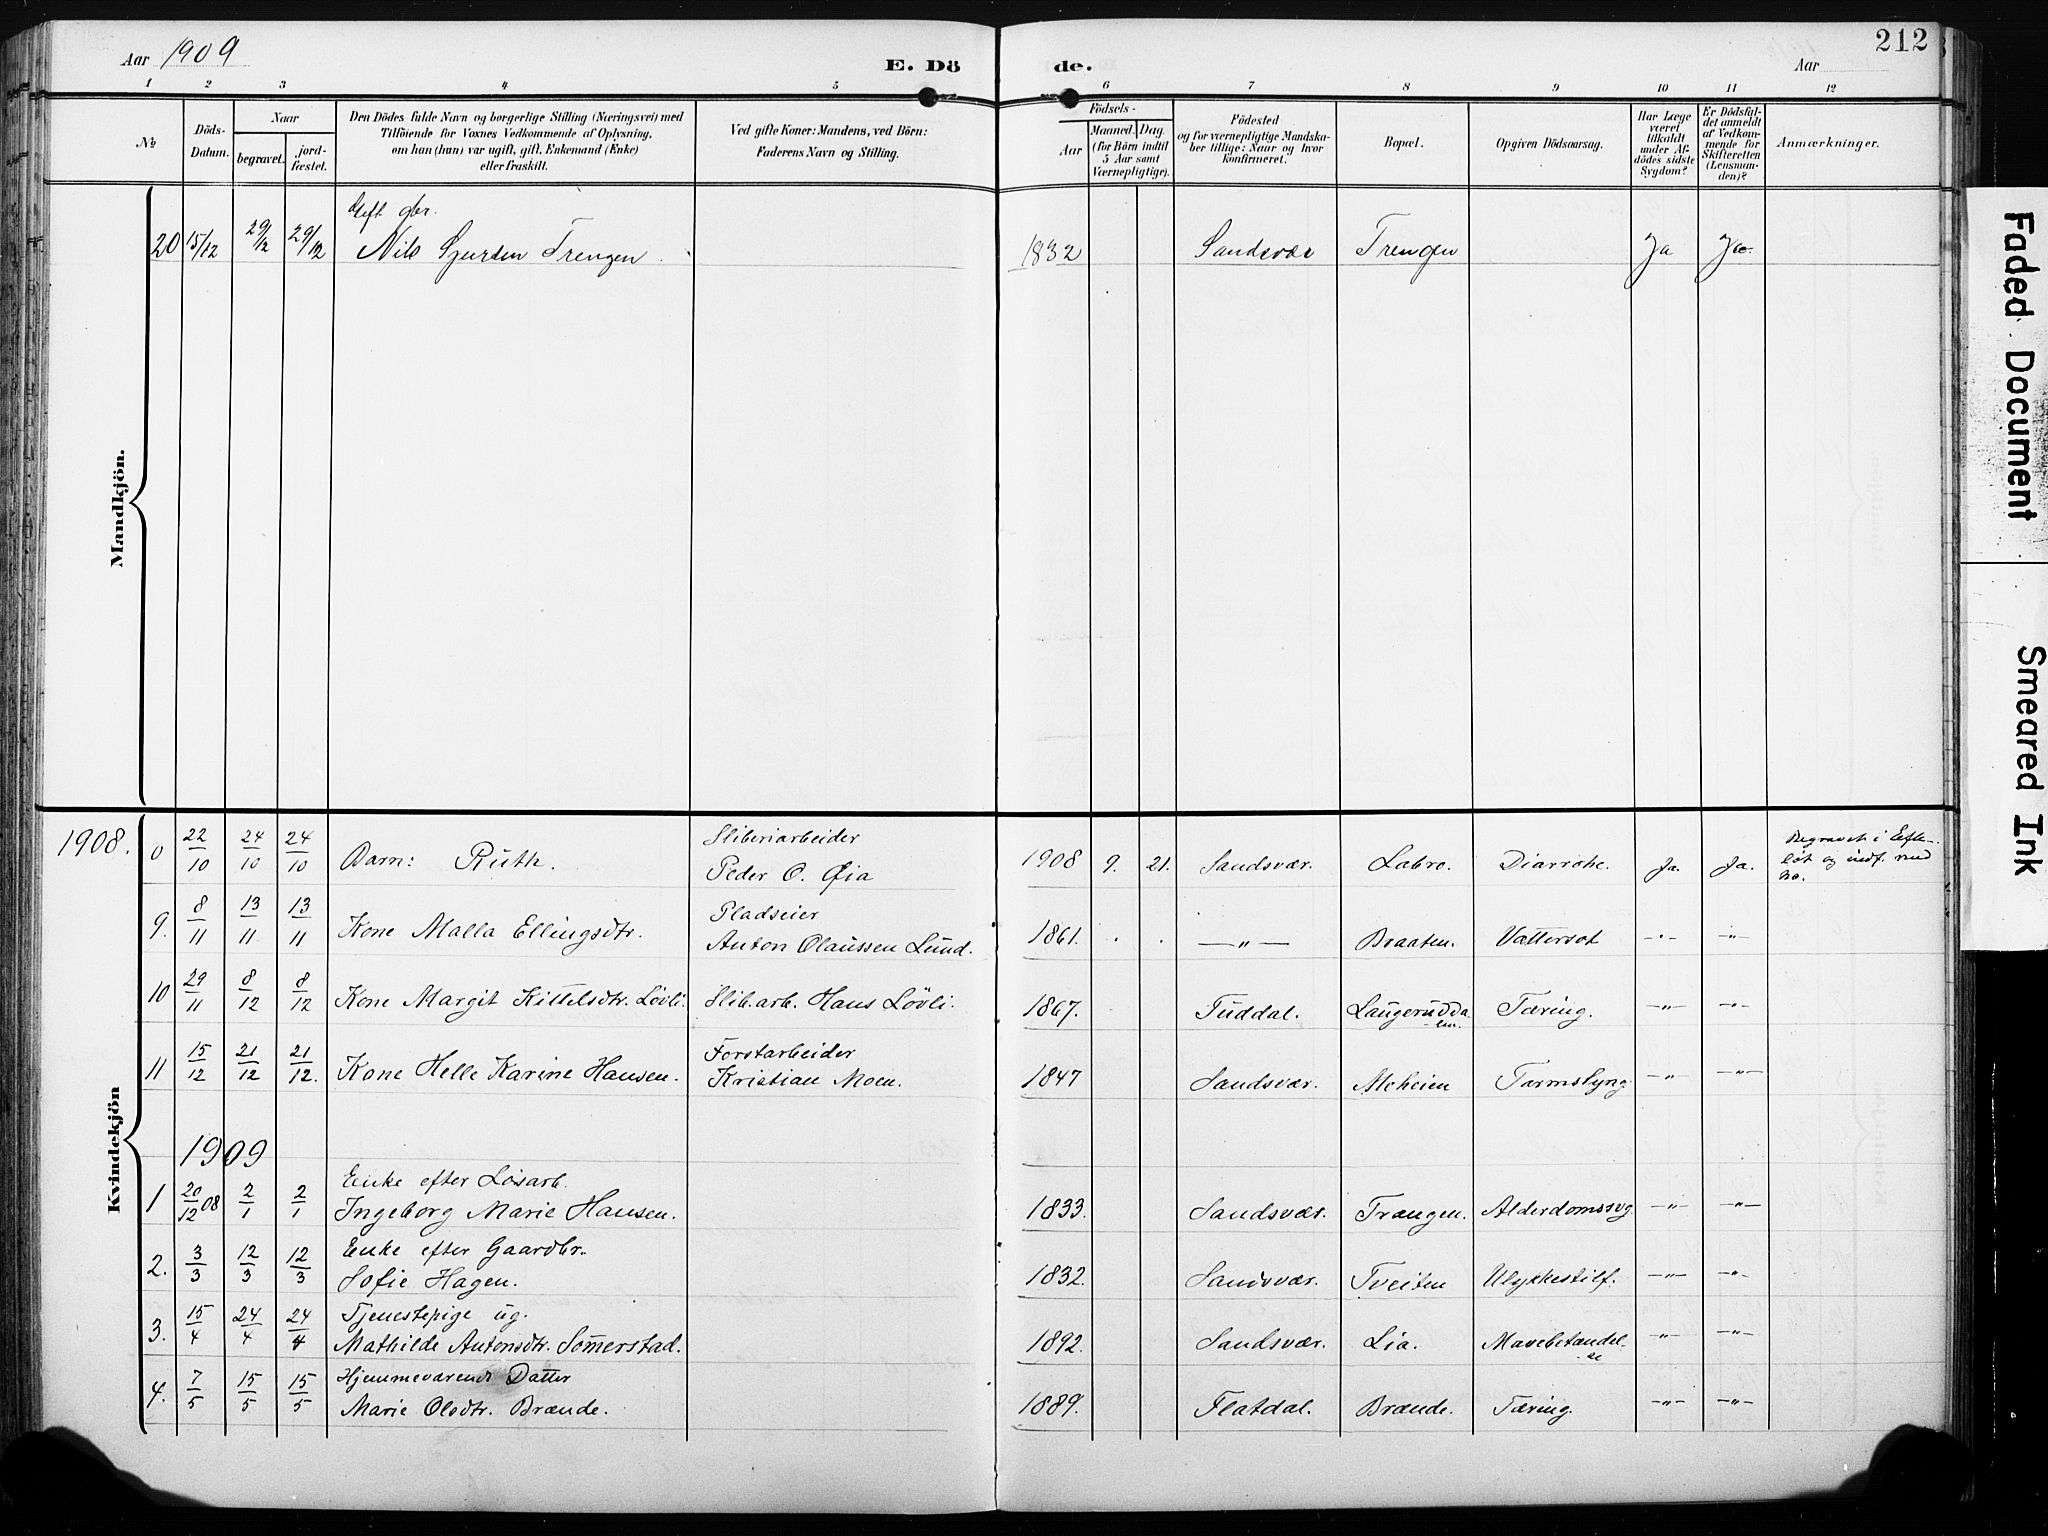 Aar 1909
E. Dö de.
Aar
212
1 2 3 4 5 6 7 8 9 10 11 12
No
Döds-Datum.
Naar
begravet.
jord-fæstet.
Den Dödes fulde Navn og borgerlige Stilling (Næringsvei) med
Tilföiende for Voxnes Vedkommende af Oplysning,
om han (hun) var ugift, gift, Enkemand (Enke)
eller fraskilt.
Ved gifte Koner: Mandens, ved Börn:
Faderens Navn og Stilling.
Födsels-
Aar
Maaned. Dag.
(for Börn indtil
5 Aar samt
Værnepligtige).
Födested
og for værnepligtige Mandska-
ber tillige: Naar og hvor
konfirmeret.
Bopæl.
Opgiven Dödsaarsag.
Har Læge
været
tilkaldt
under Af-
dödes sidste
Sygdom?
Er Dödsfal-
det anmeldt
af Vedkom-
mende for
Skifteretten
(Lensman-
den)?
Anmærkninger.
Mandkjön.
Gift gbr.
20 15/12 29/12 29/12 Nils Sjursen Trengen 1832 Sandsvær Trengen Ja Ja
Kvindekjön
1908.
Sliberiarbeider
0 22/10 24/10 24/10 Barn: Ruth. Peder O. Øia 1908 9. 21. Sandsvær. Labro. Diarrohe. Ja. Ja. Begravet i Efte-
løt og indf. med
no.
Pladseier
9. 8/11 13/11 13/11 Kone Malla Ellingsdtr. Anton Olaussen Lund. 1861. —"— Braaten. Vattersot -"- -"-
10 29/11 8/12 8/12 Kone Margit Kittelsdtr. Løvli. Slib.arb. Hans Løvli. 1867. Tuddal. Laugerudda-
len. Tæring. -"- -"-
Forstarbeider
11 15/12 21/12 21/12. Kone Helle Karine Hansen. Kristian Moen. 1847 Sandsvær. Meheien Tarmslyng -"- -"-
1909
Enke efter Løsarb.
1 20/12 08 2/1 2/1 Ingeborg Marie Hansen. 1833. Sandsvær. Trangen. Alderdomssvg -"- -"-
Enke efter Gaardbr.
2. 3/3 12/3 12/3 Sofie Hagen. 1832. Sandsvær. Tveiten Ulykkestilf. -"- -"-
Tjenestepige ug.
3. 15/4 24/4 24/4 Mathilde Antonsdtr. Somerstad. 1892. Sandsvær. Lia. Mavebetændel-
se -"- -"-
Hjemmeværende Datter
4. 7/5 15/5 15/5 Marie Olsdtr. Brænde. 1889. Flatdal. Brænde. Tæring. -"- -"-
Faded Document
Smeared Ink